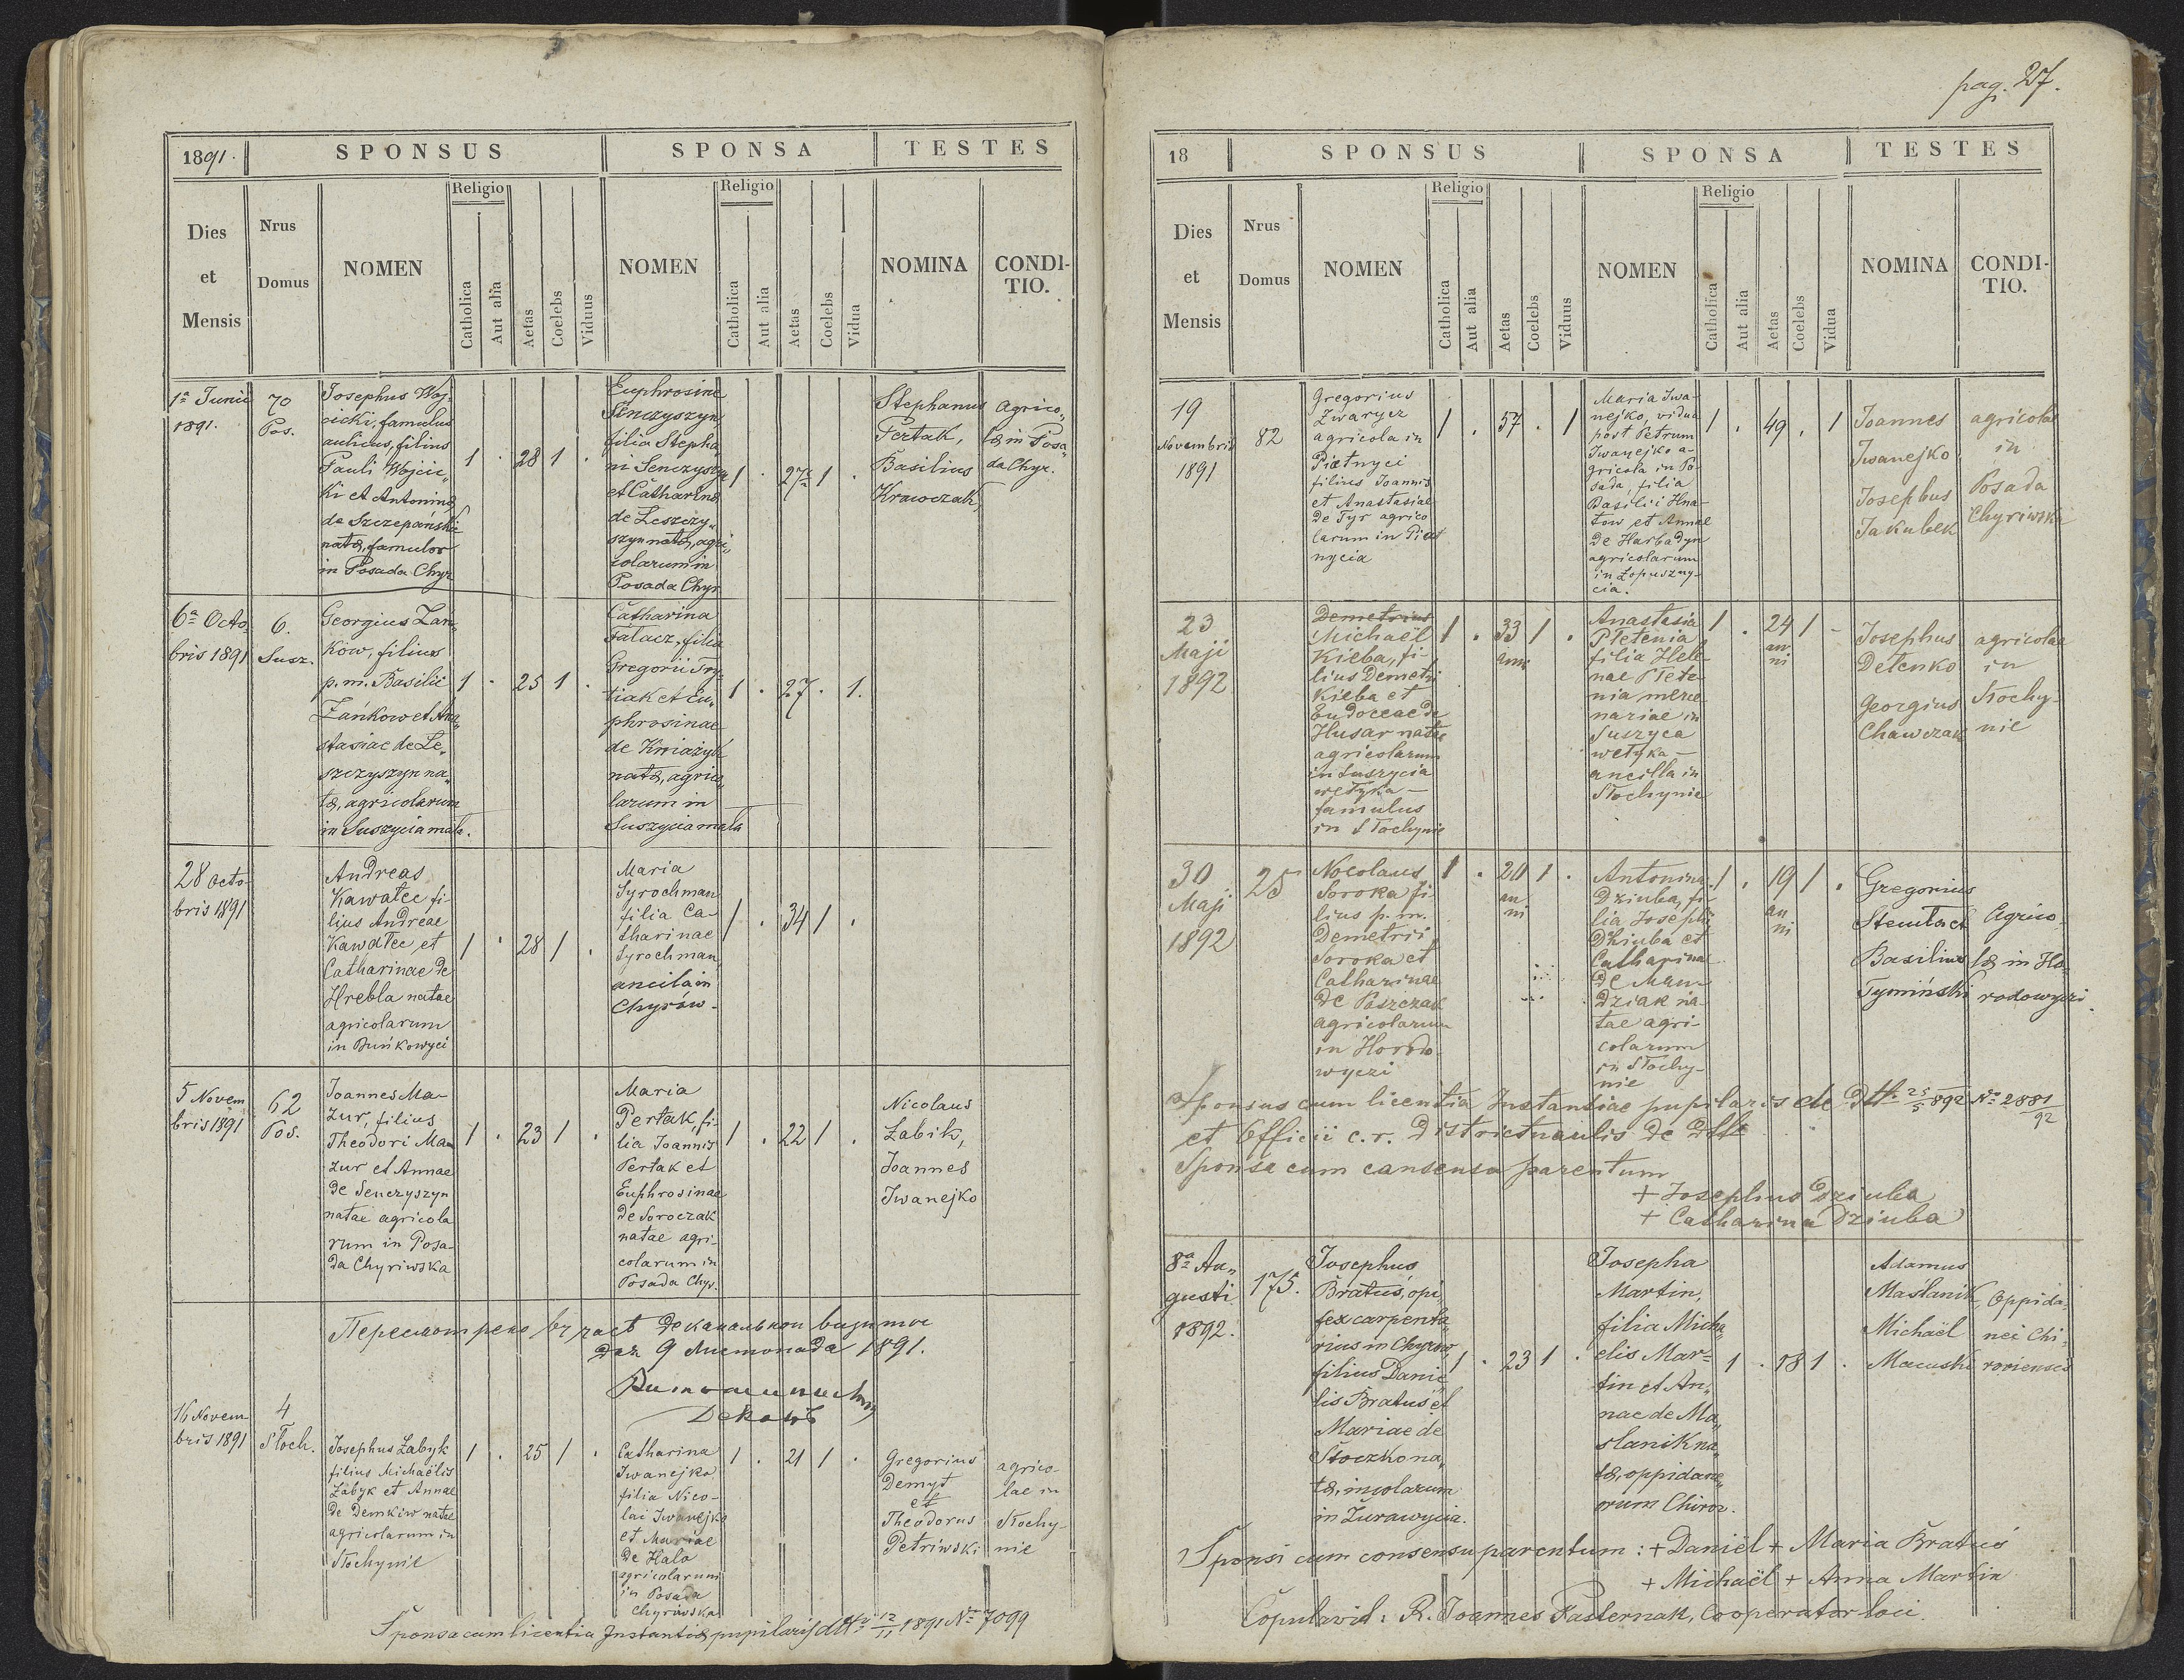 1891.
SPONSUS
SPONSA
TESTES
Dies
et
Mensis
Nrus
Domus
NOMEN
Religio
Catholica
Aut alia
Aetas
Coelebs
Viduus
NOMEN
Religio
Catholica
Aut alia
Aetas
Coelebs
Vidua
NOMINA
CONDI-
TIO.
1ª Junii
1891.
70
Pos.
Josephus Woj-
cicki, famulus
aulicus, filius
Pauli Wojcic„
ki et Antoninæ
de Szczepański
natæ, famulor
in Posada Chyr
1 . 28 1 .
Euphrosine
Senczyszyn,
filia Stepha„
ni Senczyszyn
et Catharinæ
de Leszczy„
szyn natæ, agri„
colarum in
Posada Chyr
1 . 27½ 1 .
Stephanus
Pertak,
Basilius
Krawczak,
agrico„
læ in Posa„
da Chyr.
6ª Octo-
bris 1891
6.
Susz.
Georgius Łań„
ków, filius
p. m. Basilii
Łańkow et Ana„
stasiae de Le„
szczyszyn na„
tæ, agricolarum
in Suszycia mała.
1 . 25 1 .
Catharina
Fałacz, filia
Gregorii Try„
tiak et Eu„
phrosinae
de Kniażyk
natæ, agrico„
larum in
Suszycia mała
1 . 27 . 1.
28 Octo-
bris 1891
Andreas
Kawałec fi-
lius Andreae
Kawałec et
Catharinae de
Hrebla natae
agricolarum
in Buńkowyci
1 . 28 1 .
Maria
Syrochman
filia Ca-
tharinae
Syrochman,
ancila in
Chyrów.
1 . 34 1 .
5 Novem
bris 1891
62
Pos.
Joannes Ma-
zur, filius
Theodori Ma-
zur et Annae
de Senczyszyn
natae agricola
rum in Posa-
da Chyriwska
1 . 23 1 .
Maria
Pertak, fi-
lia Joannis
Pertak et
Euphrosinae
de Soroczak
natae agri-
colarum in
Posada Chyr.
1 . 22 1 .
Nicolaus
Łabik,
Joannes
Iwanejko
9 Листопада 1891.
Деканъ
16 Novem
bris 1891
4
Słoch.
Josephus Łabyk
filius Michaëlis
Łabyk et Annae
de Demkiw natae
agricolarum in
Słochynie
1 . 25 1 .
Catharina
Iwanejko
filia Nico-
lai Iwanejko
et Mariae
de Hala
agricolarum
in Posada
Chyriwska
1 . 21 1 .
Gregorius
Demyt
et
Theodorus
Petriwski
agrico-
lae in
Słochy-
nie
Sponsa cum licentia Instantiæ pupilaris ddto 12/11 1891 No 7099
pag. 27.
18
SPONSUS
SPONSA
TESTES
Dies
et
Mensis
Nrus
Domus
NOMEN
Religio
Catholica
Aut alia
Aetas
Coelebs
Viduus
NOMEN
Religio
Catholica
Aut alia
Aetas
Coelebs
Vidua
NOMINA
CONDI-
TIO.
19
Novembris
1891
82
Gregorius
Zwarycz
agricola in
Piatnyci
filius Joannis
et Anastasiae
de Tyr agrico
larum in Piat
nycia
1 . 57 . 1
Maria Iwa-
nejko, vidua
post Petrum
Iwanejko a-
gricola in Po-
sada, filia
Basilii Hna-
tow et Annae
de Harbadyn
agricolarum
in Łopuszny-
cia.
1 . 49 . 1
Joannes
Iwanejko
Josephus
Jakubek
agricolae
in
Posada
Chyriwska
23
Maji
1892
Demetrius
Michaël
Kieba, fi-
lius Demetri
Kieba et
Eudoceae de
Husar natae
agricolarum
in Suszycia
wełyka -
famulus
in Słochynie
1 . 33 1 .
anni
Anastasia
Pletenia
filia Hele-
nae Plete-
nia merce
nariae in
Suszyca
wełyka -
ancilla in
Słochynie
1 . 24 1 -
an
ni
Josephus
Detenko
Georgius
Chawczak
agricolae
in
Słochy-
nie
30
Maji
1892
25
Nocolaus
Soroka fi-
lius p. m.
Demetrii
Soroka et
Catharinae
de Paszczak
agricolarum
in Horodo-
wyczi
1 . 20 1 .
an
ni
Antonina
Dziuba, fi-
lia Josephi
Dziuba et
Catharinae
de Man-
dziak na-
tae agri-
colarum
in Słochy-
nie
1 . 19 1 .
an
ni
Gregorius
Basilius
Tymiński
Agrico„
læ in Ho„
rodowyczi.
Sponsus cum licentia Instantiae pupilaris de dtt. 25/5 892 No 2881/92
et Officii c. r. Districtuaulis de
Sponsa cum cansensu parentum
+ Josephus Dziuba
+ Catharina Dziuba
8ª Au„
gusti
1892.
175.
Josephus
Bratuś, opi„
fex carpenta„
rius in Chyrów,
filius Danie„
lis Bratuś et
Mariae de
Stoczko na„
tæ, incolarum
in Żurawycia.
1 . 23 1 .
Josepha
Martin,
filia Micha„
elis Mar=
tin et An„
nae de Ma„
slanik na„
tæ, oppidane„
orum Chirov.
1 . 18 1 .
Adamus
Maślanik,
Michaël
Macuski
Oppida„
nei Chi„
rorienses
Sponsi cum consensu parentum: + Daniël + Maria Bratuś
+ Michaël + Anna Martin
Copulavit: R. Joannes Pasternak, Cooperator loci.